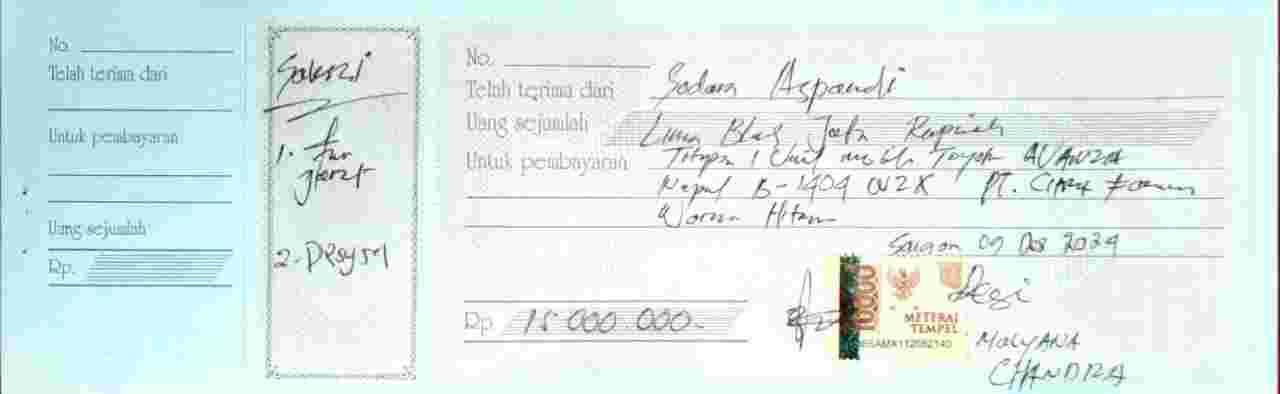 No.
Telah terima dari
Untuk pembayaran
Uang sejumlah
Rp.
Saksi
1.
2.
No.
Telah terima dari Sodara Aspandi
Uang sejumlah Lima Blas Juta Rupiah
Untuk pembayaran Titipan 1 Unit mobil Toyota AVANZA
Nopol B-1404 PT.
Warna Hitam
09 Des 2024
Rp 15.000.000.-
10000
METERAI
TEMPEL
MULYANA
CHANDRA